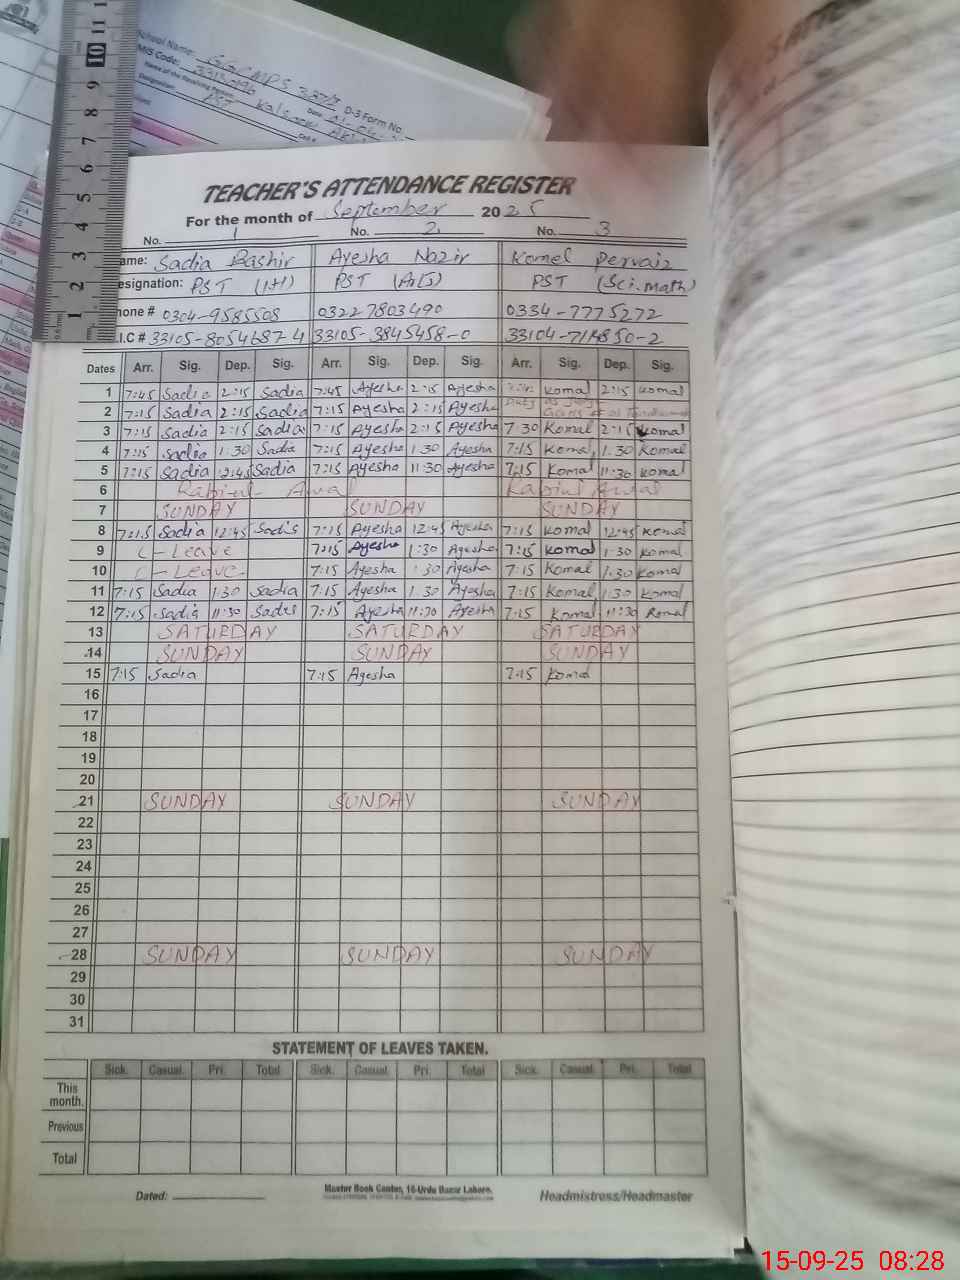 School Name: GGCMPS
MIS Code:
Name of the Receiving Person:
Designation: PST
D-3 Form No.
TEACHER'S ATTENDANCE REGISTER
For the month of September 2025
No. 1 No. 2 No. 3
ame: Sadia Bashir Ayesha Nazir Komel Pervaiz
esignation: PST PST (Arts) PST (Sci.math)
hone # 0304-9585508 0322 7803490 0334-7775272
.I.C # 33105-8054687-4 33105-3845458-0
Dates Arr. Sig. Dep. Sig. Arr. Sig. Dep. Sig. Arr. Sig. Dep. Sig.
1 7:45 Sadia 2:15 Sadia 7:45 Ayesha 2:15 Ayesha Komal 2:15 Komal
2 7:15 Sadia 2:15 Sadia 7:15 Ayesha 2:15 Ayesha
3 7:15 Sadia 2:15 Sadia 7:15 Ayesha 2:15 Ayesha 7 30 Komal 2:15 Komal
4 7:15 Sadia 1:30 Sadia 7:15 Ayesha 1:30 Ayesha 7:15 Komal 1:30 Komal
5 7:15 Sadia Sadia 7:15 Ayesha 11:30 Ayesha 7:15 Komal 11:30 Komal
6 Rabiul Awal Rabiul Awal
7 SUNDAY SUNDAY SUNDAY
8 7:15 Sadia 12:45 Sadia 7:15 Ayesha 12:45 Ayesha 7:15 Komal 12:45 Komal
9 C-Leave 7:15 Ayesha 1:30 Ayesha 7:15 Komal 1:30 Komal
10 C-Leave 7:15 Ayesha 1:30 Ayesha 7:15 Komal 1:30 Komal
11 7:15 Sadia 1:30 Sadia 7:15 Ayesha 1:30 Ayesha 7:15 Komal 1:30 Komal
12 7:15 Sadia 11:30 Sadia 7:15 Ayesha 11:30 Ayesha 7:15 Komal 11:30 Komal
13 SATURDAY SATURDAY SATURDAY
14 SUNDAY SUNDAY SUNDAY
15 7:15 Sadia 7:15 Ayesha 7:15 Komal
16
17
18
19
20
21 SUNDAY SUNDAY SUNDAY
22
23
24
25
26
27
28 SUNDAY SUNDAY SUNDAY
29
30
31
STATEMENT OF LEAVES TAKEN.
Sick. Casual. Pri. Total Sick. Casual. Pri. Total Sick. Casual. Pri. Total
This month.
Previous
Total
Dated: Master Book Center, 16-Urdu Bazar Lahore. Headmistress/Headmaster
15-09-25 08:28